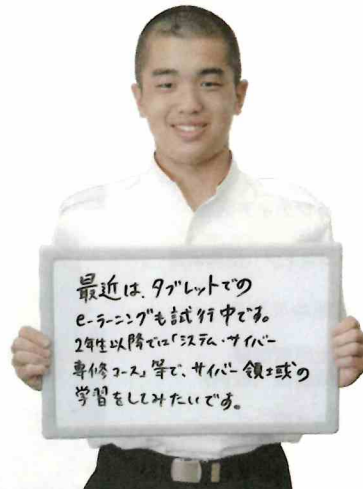 最近は、タブレットでの
e-ラーニングも試行中です。
2年生以降では「システム・サイバー
専修コース」等で、サイバー領域の
学習をしてみたいです。